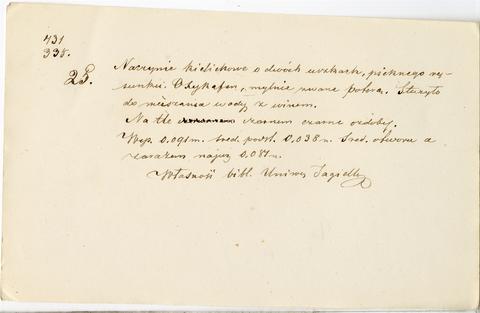 431
335.
25. Naczynie kielichowe o dwóch uszkach, pięknego ry-
sunku. Oxykafen, mylnie zwane potera. Służyło
do mieszania wody z winem.
Na tle czarnem czarne ozdoby.
Wys. 0.091m. śred. podst. 0,038 m. Śred. otworu a
zarazem najw. 0.081 m.
Własność bibl. Uniwer. Jagiell.